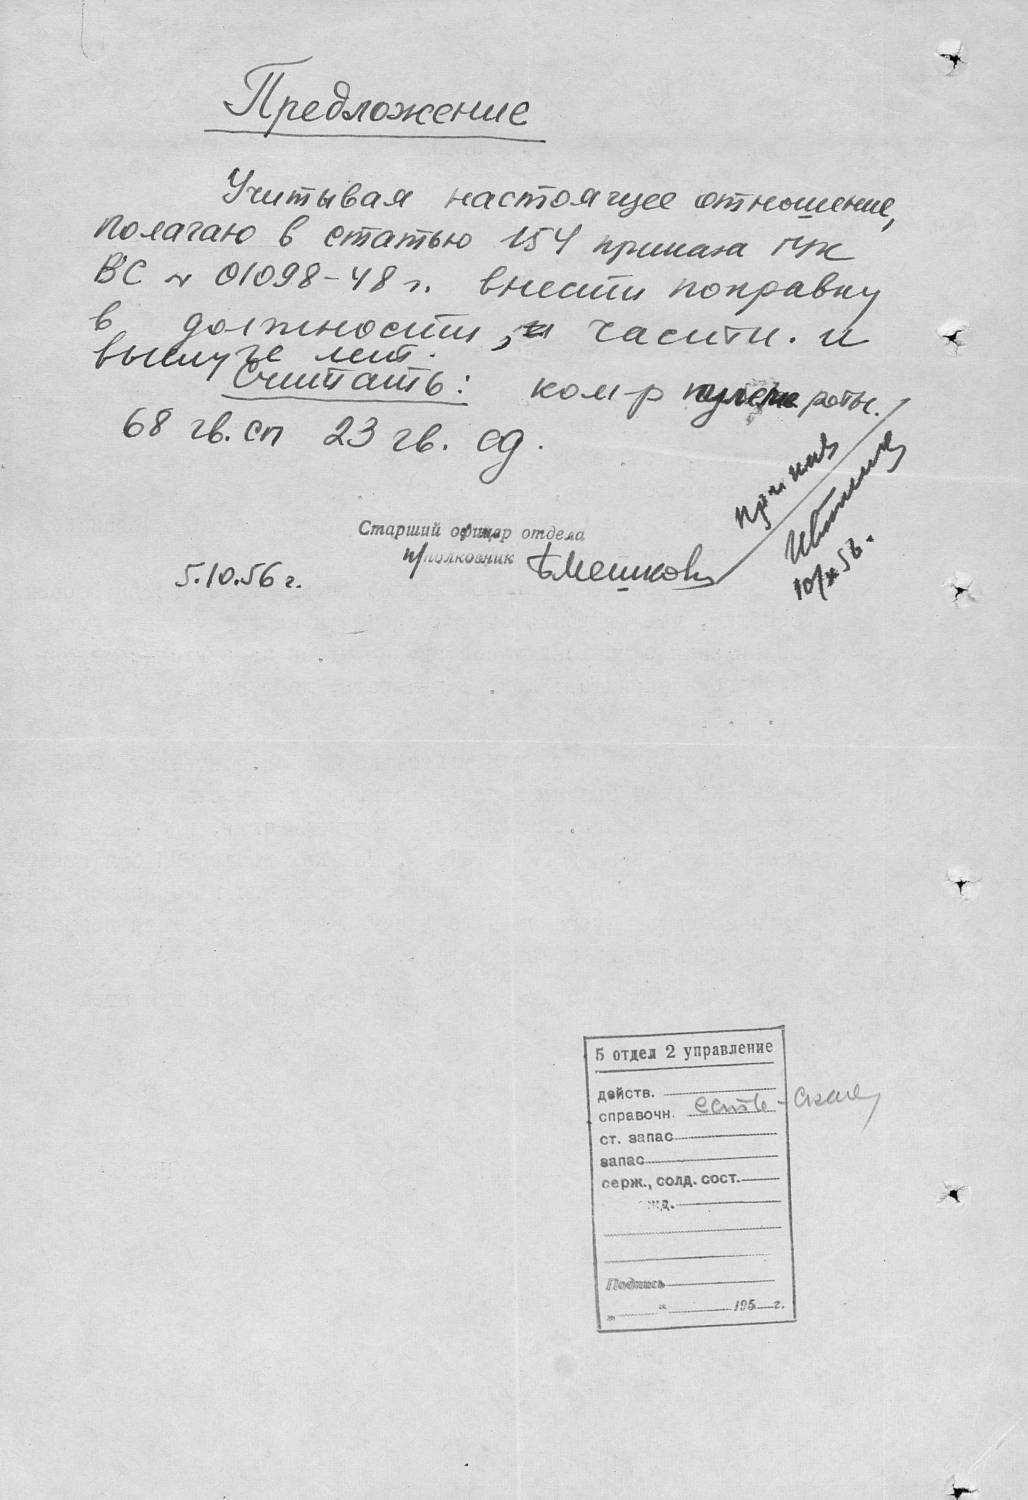 Предложение
Учитывая настоящее отношение,
полагаю в статью 154 приказа МК
ВС № 01098-48 г. внести поправку
в должности, части и
выслуге лет.
Считать: ком-р роты
68 гв. сп 23 гв. сд.
Старший офицер отдела
п/полковник Мешков
5.10.56 г.
5 отдел 2 управление
действ.
справочн. есть -
ст. запас
запас
серж., солд. сост.
жд.
Подпись
„ “ 195 г.